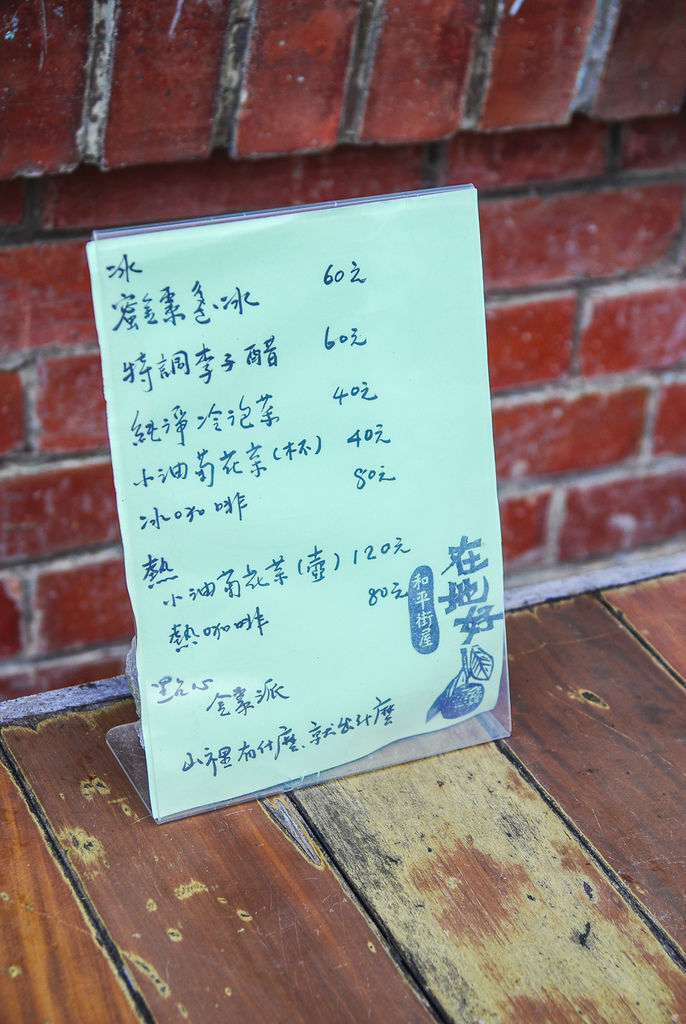 冰
蜜金棗色冰 60元
特調李子醋 60元
純淨冷泡茶 40元
小油菊花茶(杯) 40元
冰咖啡 80元
熱
小油菊花茶(壺) 120元
熱咖啡 80元
點心 金棗派
山裡有什麼、就出什麼
在地好
和平街屋